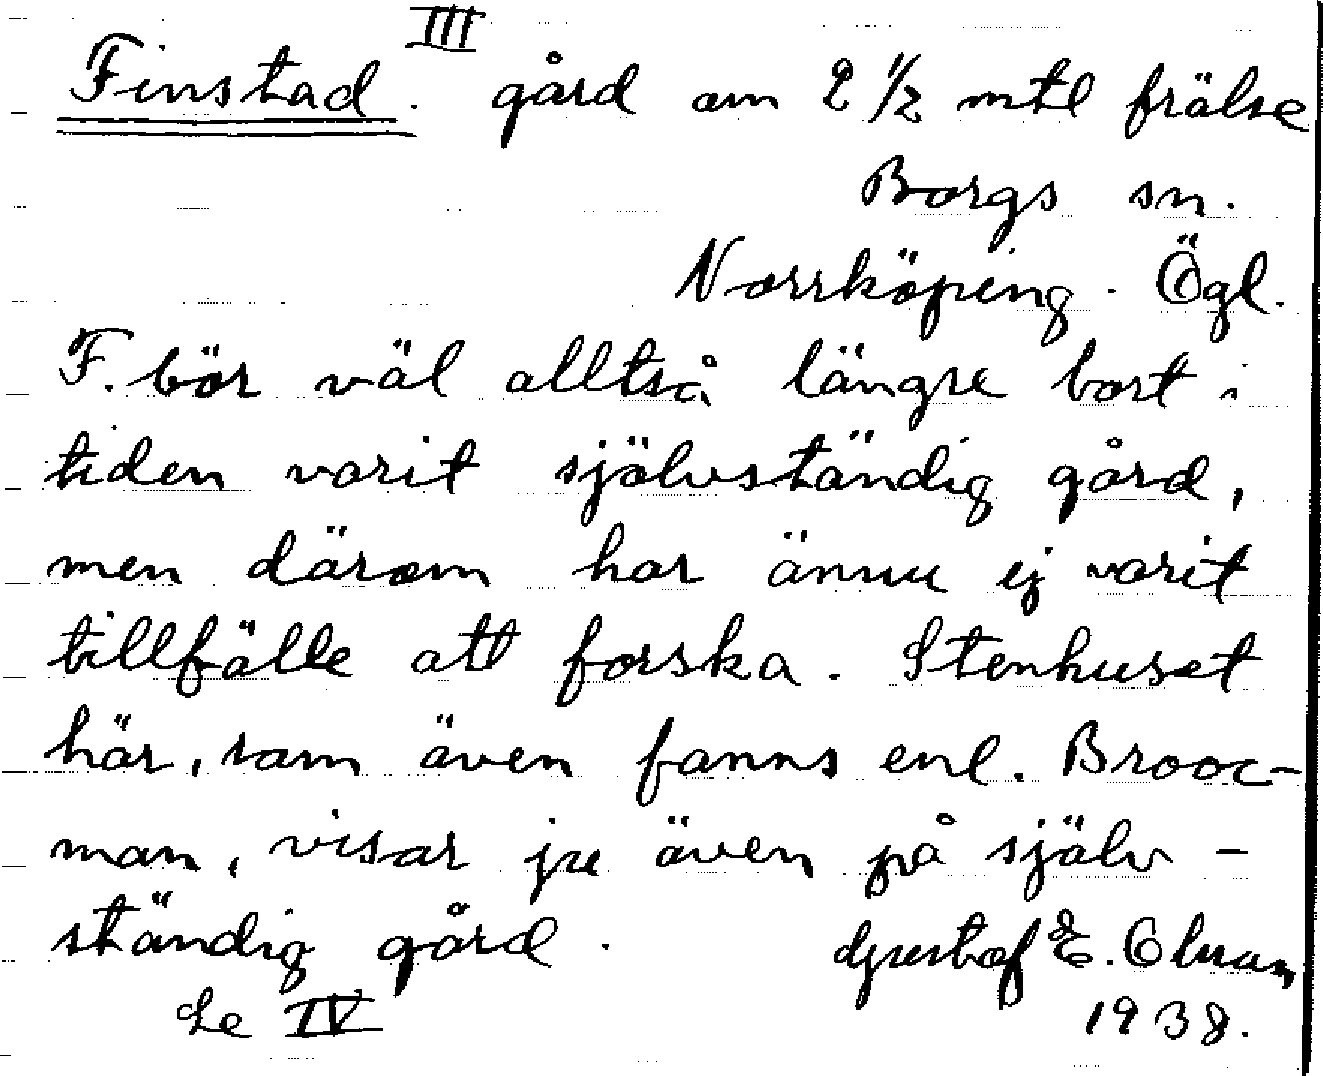 III
Finstad. gård om 2 1/2 mtl frälse
Borgs sn.
Norrköping. Ögl.
F. bör väl alltså längre bort i
tiden varit självständig gård,
men därom har ännu ej varit
tillfälle att forska. Stenhuset
här, som även fanns enl. Brooc-
man, visar ju även på själv-
ständig gård. Gustaf E.
Se IV 1938.